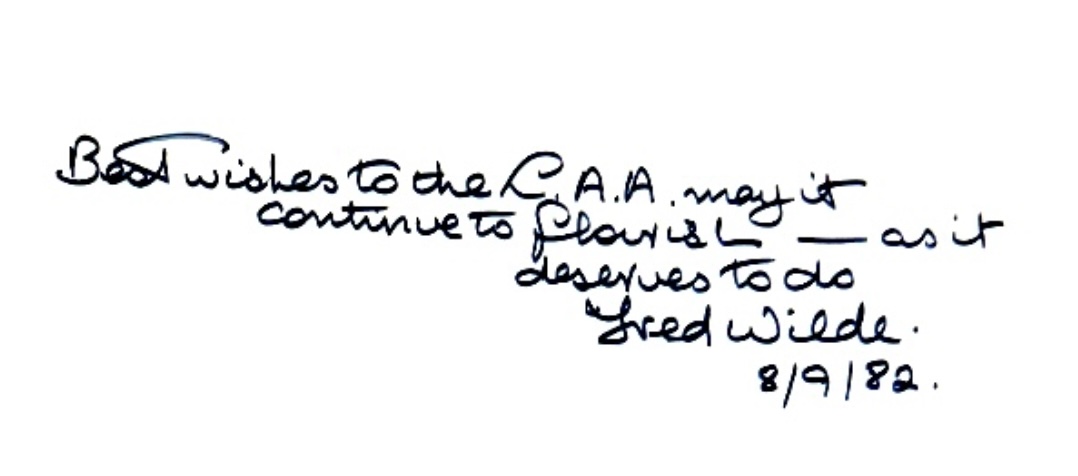 Best wishes to the C.A.A. may it
continue to flourish — as it
deserves to do
Fred Wilde.
8/9/82.